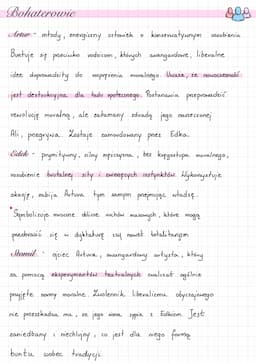 Bohaterowie
Artur - młody, energiczny człowiek o konserwatywnym usposobieniu
Buntuje się przeciwko rodzicom, których awangardowe, liberalne
idee doprowadziły do rozprężenia moralnego. Uważa, że nowoczesność
jest destrukcyjna dla ładu społecznego. Postanawia przeprowadzić
rewolucję moralną, ale załamany zdradą jego narzeczonej
Ali, przegrywa. Zostaje zamordowany przez Edka.
Edek - prymitywny, silny mężczyzna, bez kręgosłupa moralnego,
uosobienie brutalnej siły i zwierzęcych instynktów. Wykorzystuje
okazję, zabija Artura tym samym przejmując władzę.
*Symbolizuje mroczne oblicze ruchów masowych, które mogą
przeobrazić się w dyktaturę czy nawet totalitaryzm
Stomil - ojciec Artura, awangardowy artysta, który
za pomocą eksperymentów teatralnych zwalczał ogólnie
przyjęte normy moralne. Zwolennik liberalizmu obyczajowego
nie przeszkadza mu, że jego żona sypia z Edkiem. Jest
zaniedbany i niechlujny, co jest dla niego formą
buntu wobec tradycji